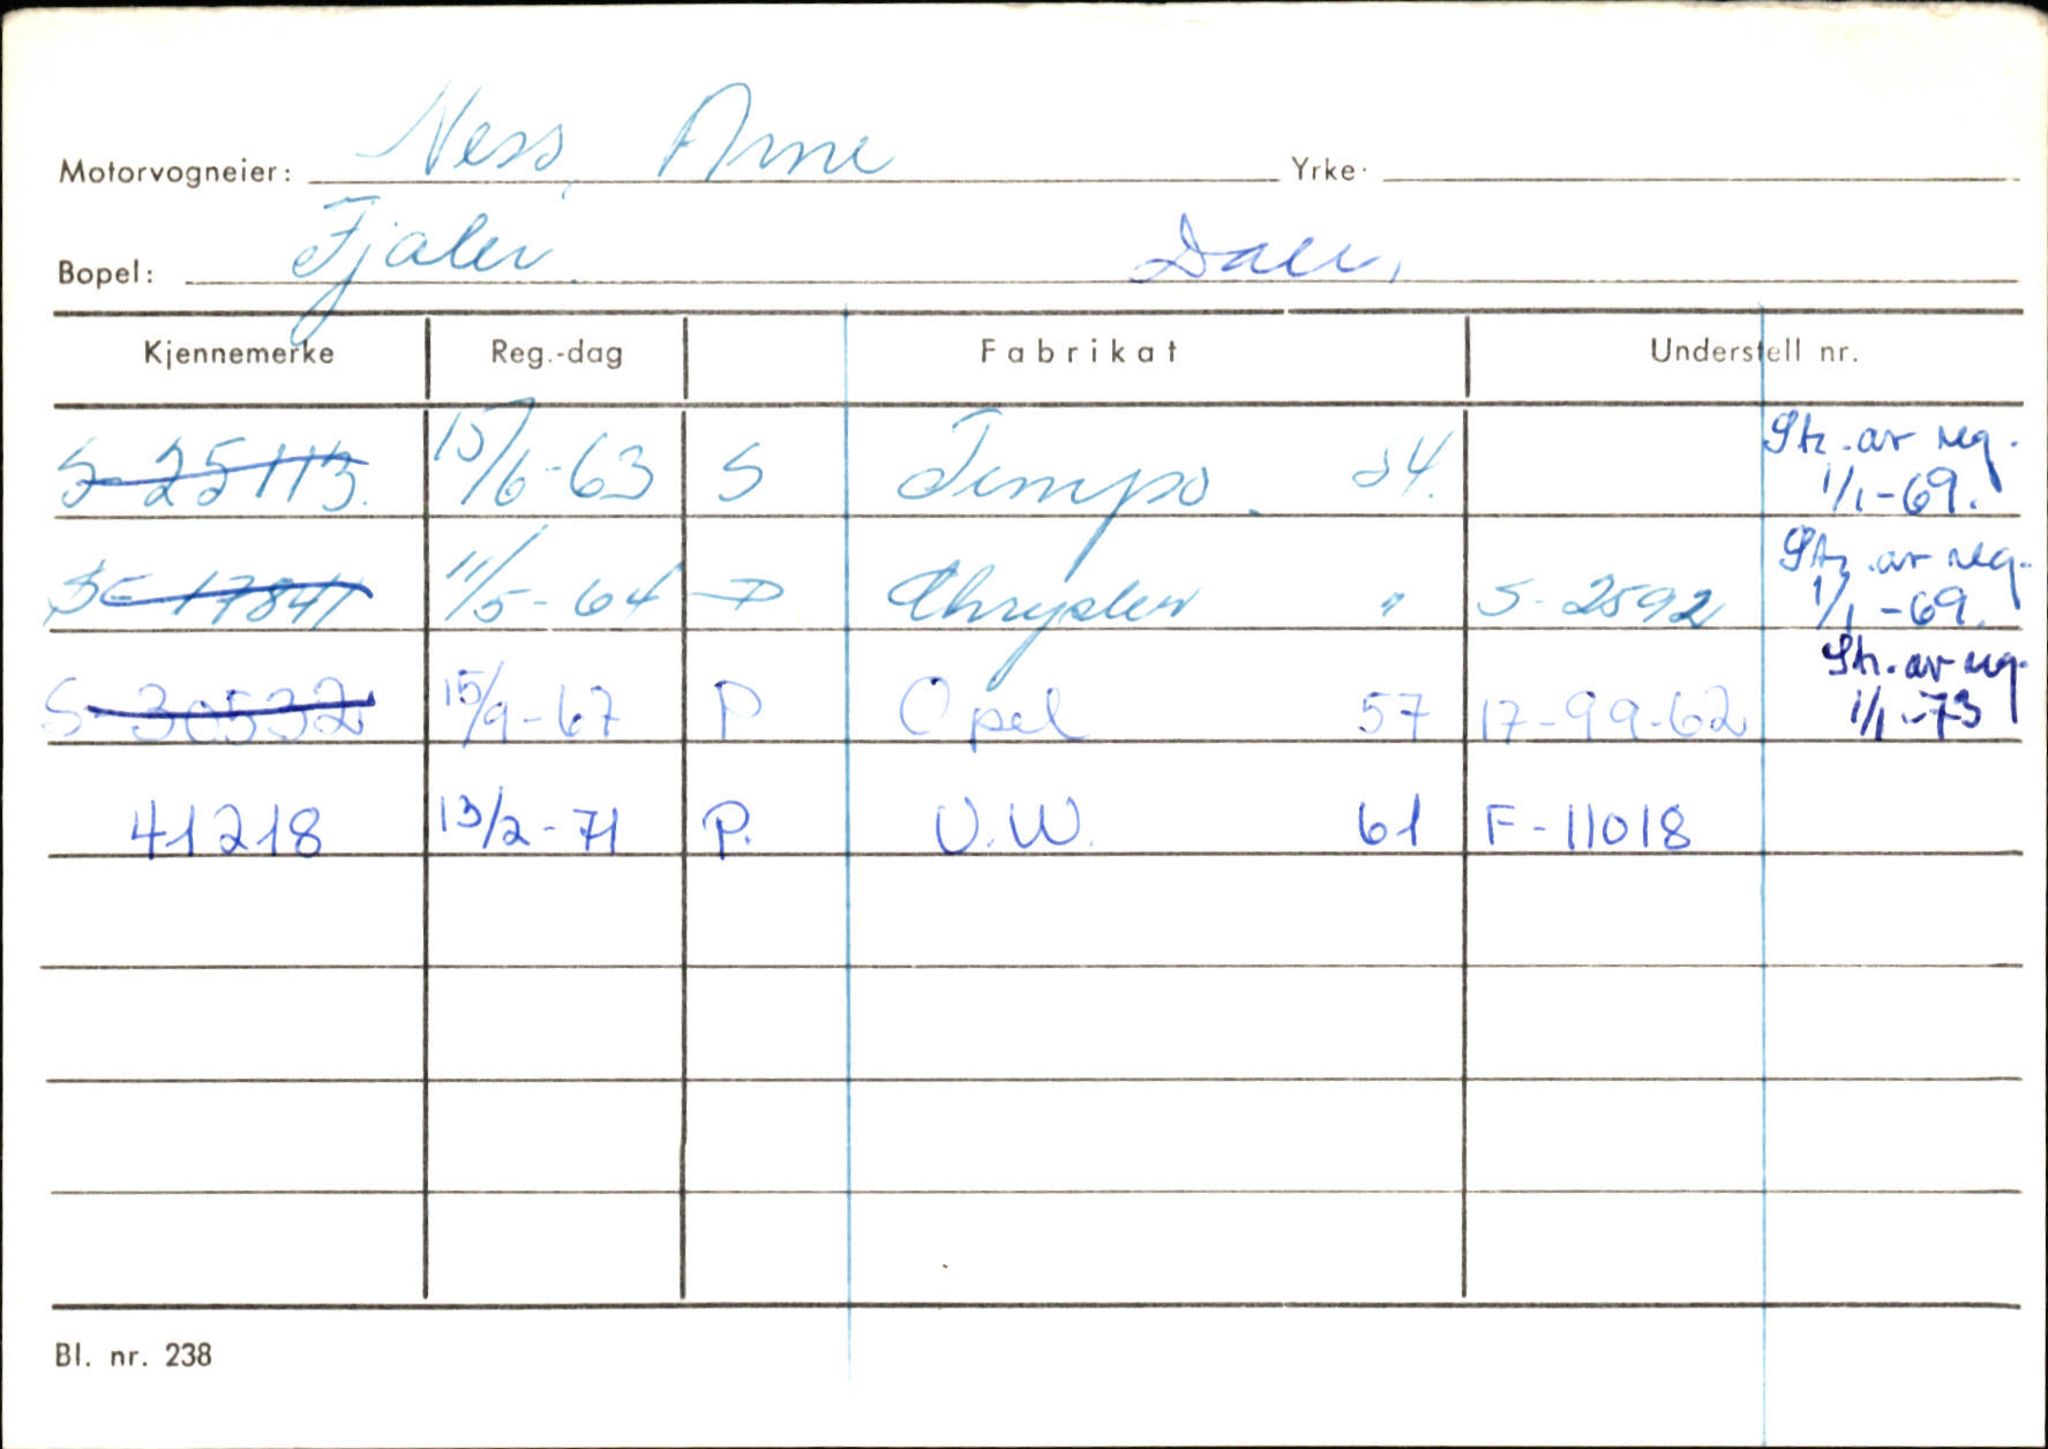 Motorvogneier: Ness, Arne Yrke:
Bopel: Fjaler. Dale,
Kjennemerke Reg.-dag Fabrikat Understell nr.
S-25113. 15/6-63 S Tempo. 54. Str. av reg. 1/1-69.
S-17841 11/5-64 P Chrysler " S-2592 Str. av reg. 1/1-69.
S-30532 15/9-67 P Opel 57 17-99-62 Str. av reg. 1/1-73
41218 13/2-71 P. V.W. 61 F-11018
Bl. nr. 238